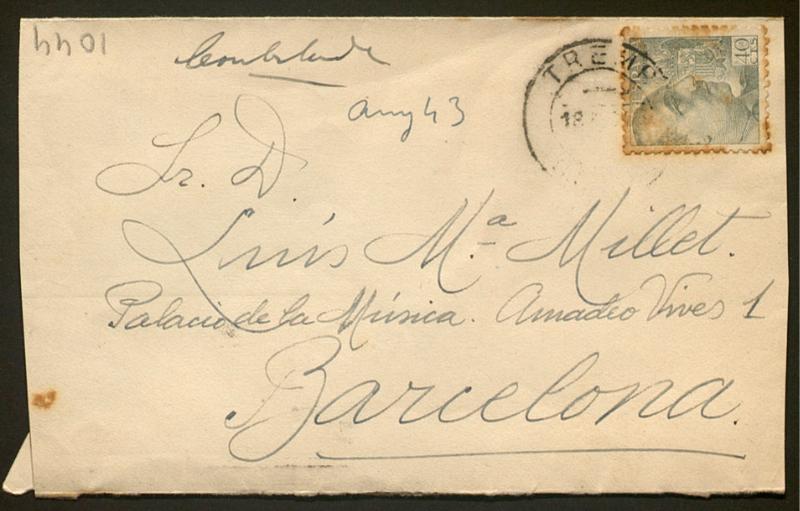 1044
Contestada
any 43
TREMP
18
40 CTS
Sr. D.
Luís Mª Millet.
Palacio de la Música. Amadeo Vives 1
Barcelona.